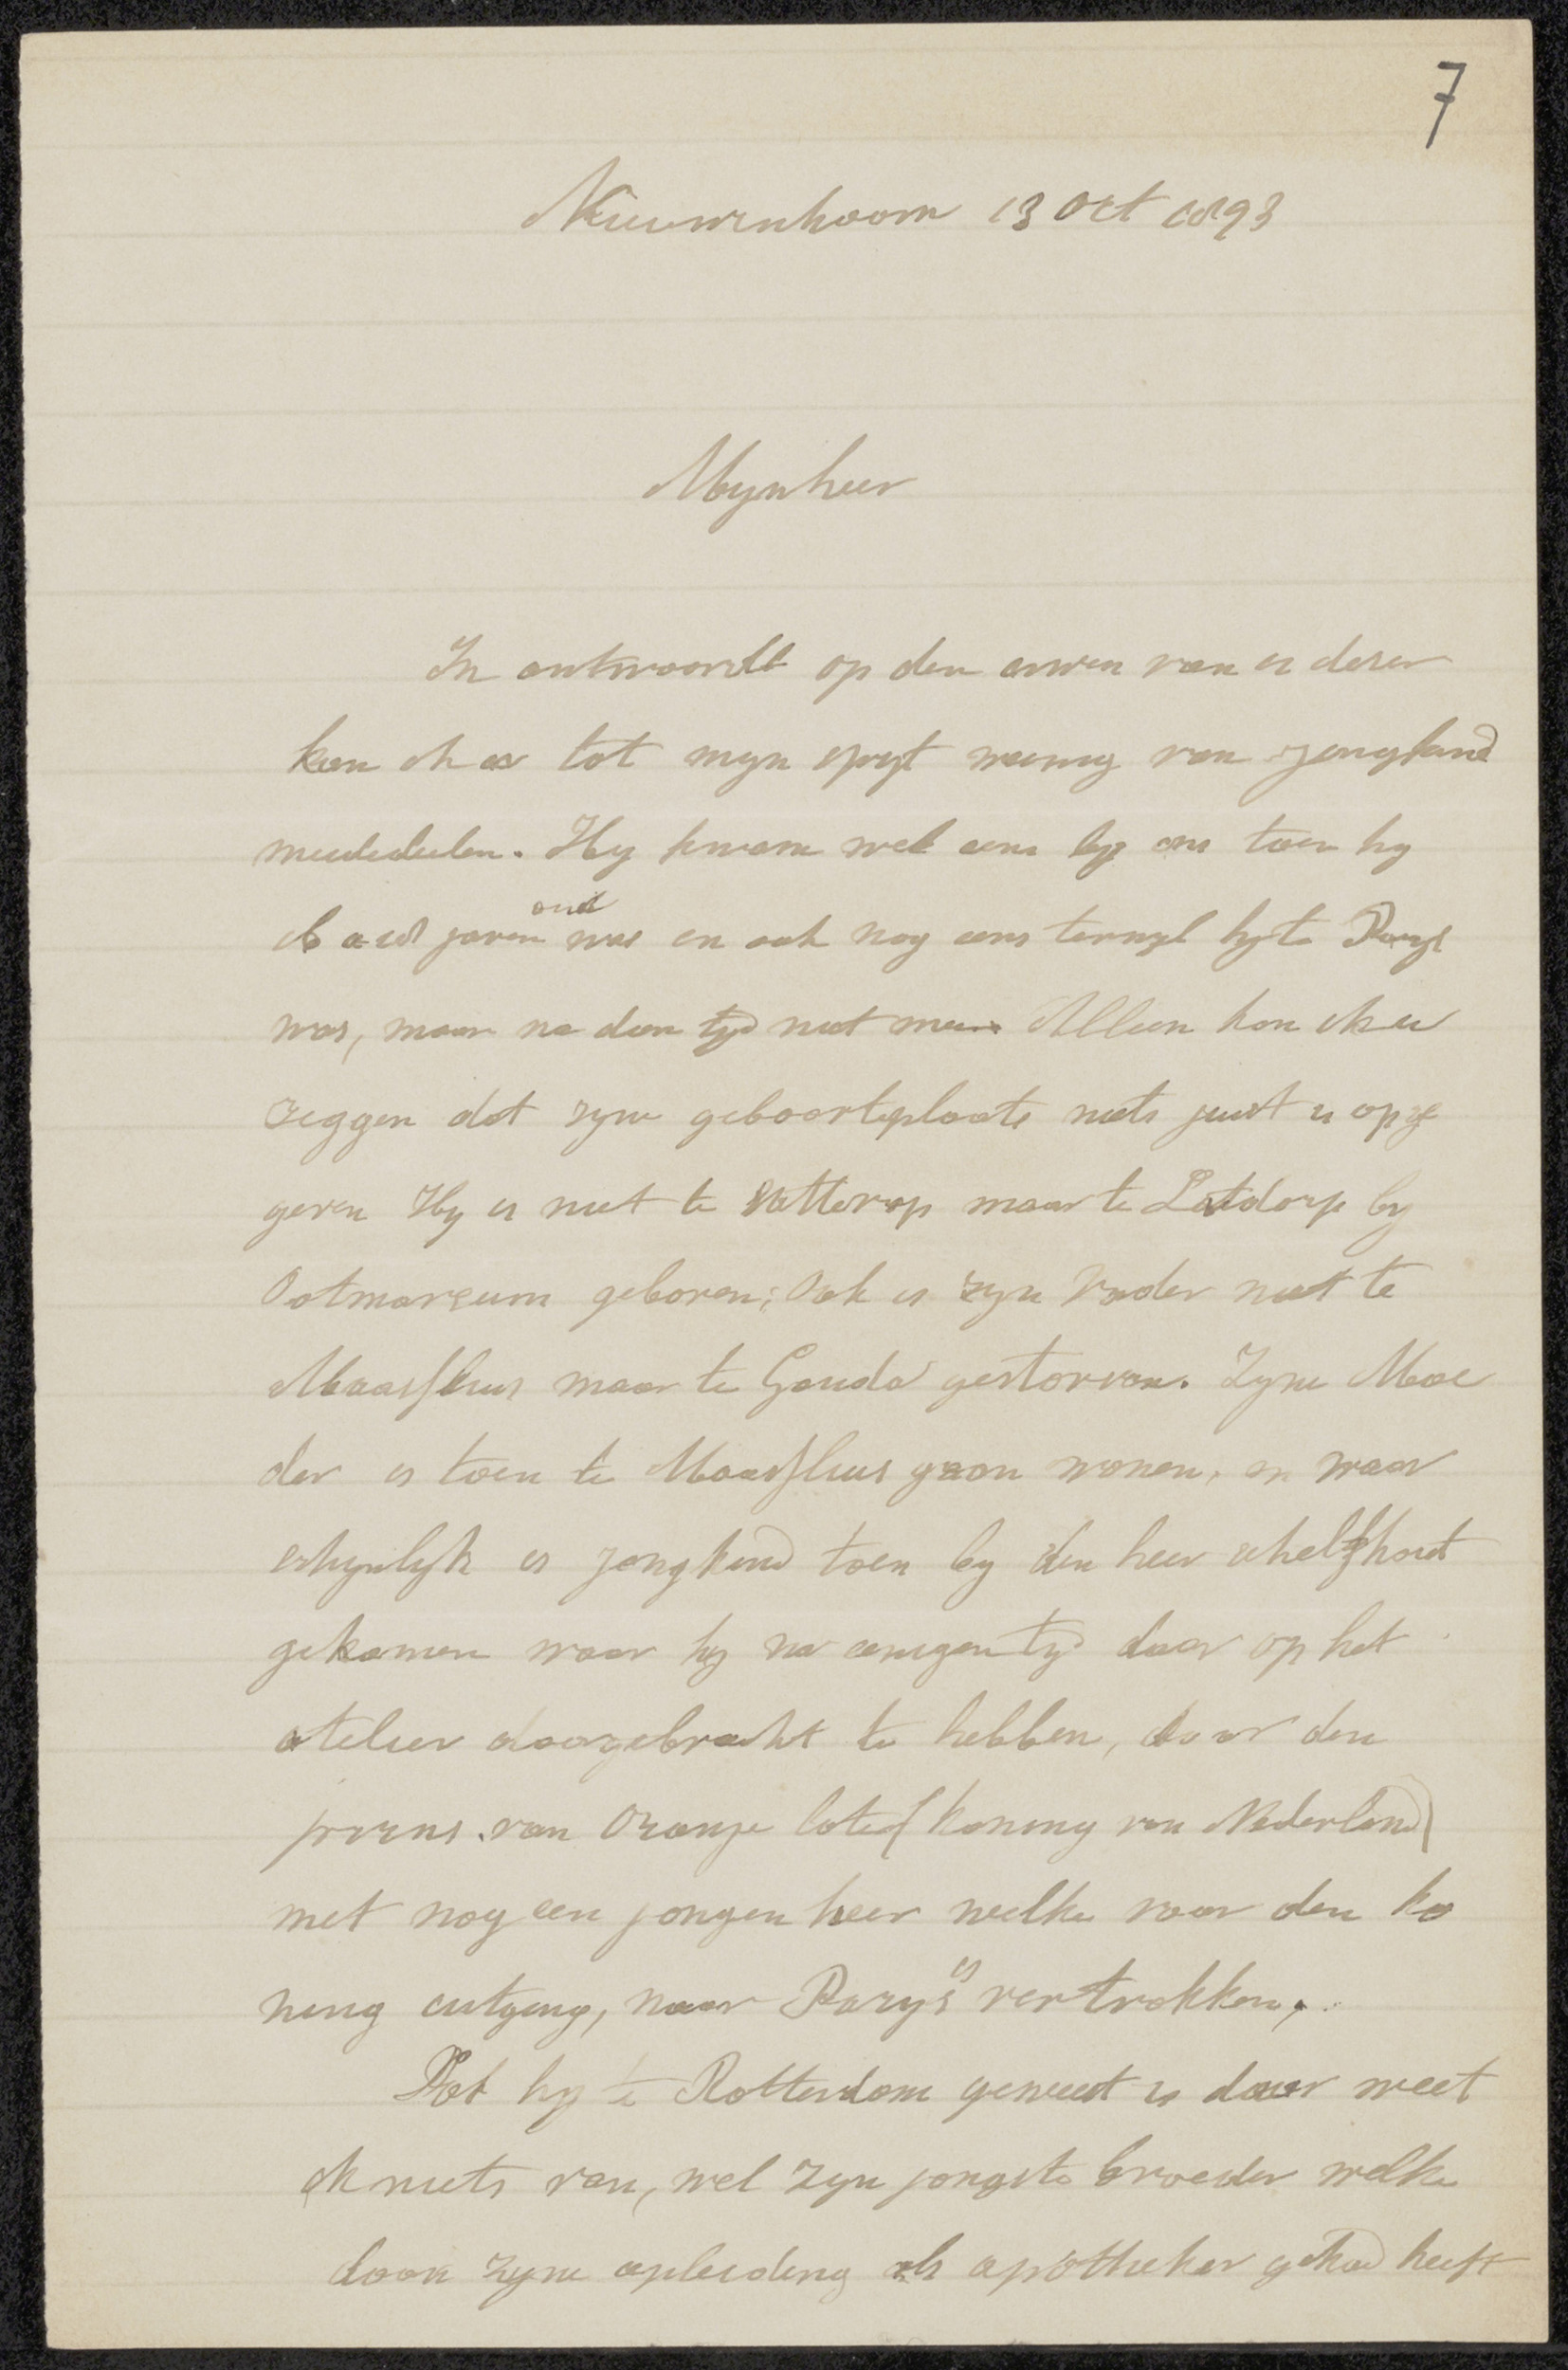 7
Nieuwenhoorn 13 Oct 1893
Mynheer
In antwoordt op den uwen van u dezer
kan ik u tot myn spyt weinig van Jongkind
meededeelen. Hy kwam wel eens by ons toen hy
16 a 18 jaren oud was en ook nog eens terwyl hy te Parys
was, maar na dien tyd niet meer. Alleen kan ik u
zeggen dat zyne geboorteplaats niet juist is opge
geven Hy is niet te Vatterop maar te Latdorp by
Ootmarsum geboren; Ook is zyn Vader niet te
Maassluis maar te Gouda gestorven. Zyne Moe
der is toen te Maassluis gaan wonen, en waar
schynlyk is Jongkind toen by den heer Schelfhout
gekomen waar hy na eenigen tyd daar op het
atelier doorgebracht te hebben, door den
prins van Oranje later (koning van Nederland)
met nog een jongen heer welke voor den ko
ning uitging, naar Parys is vertrokken.
Dat hy te Rotterdam geweest is daar weet
ik niets van, wel zyn jongste broeder welke
daar zyne opleiding als apotheker gehad heeft